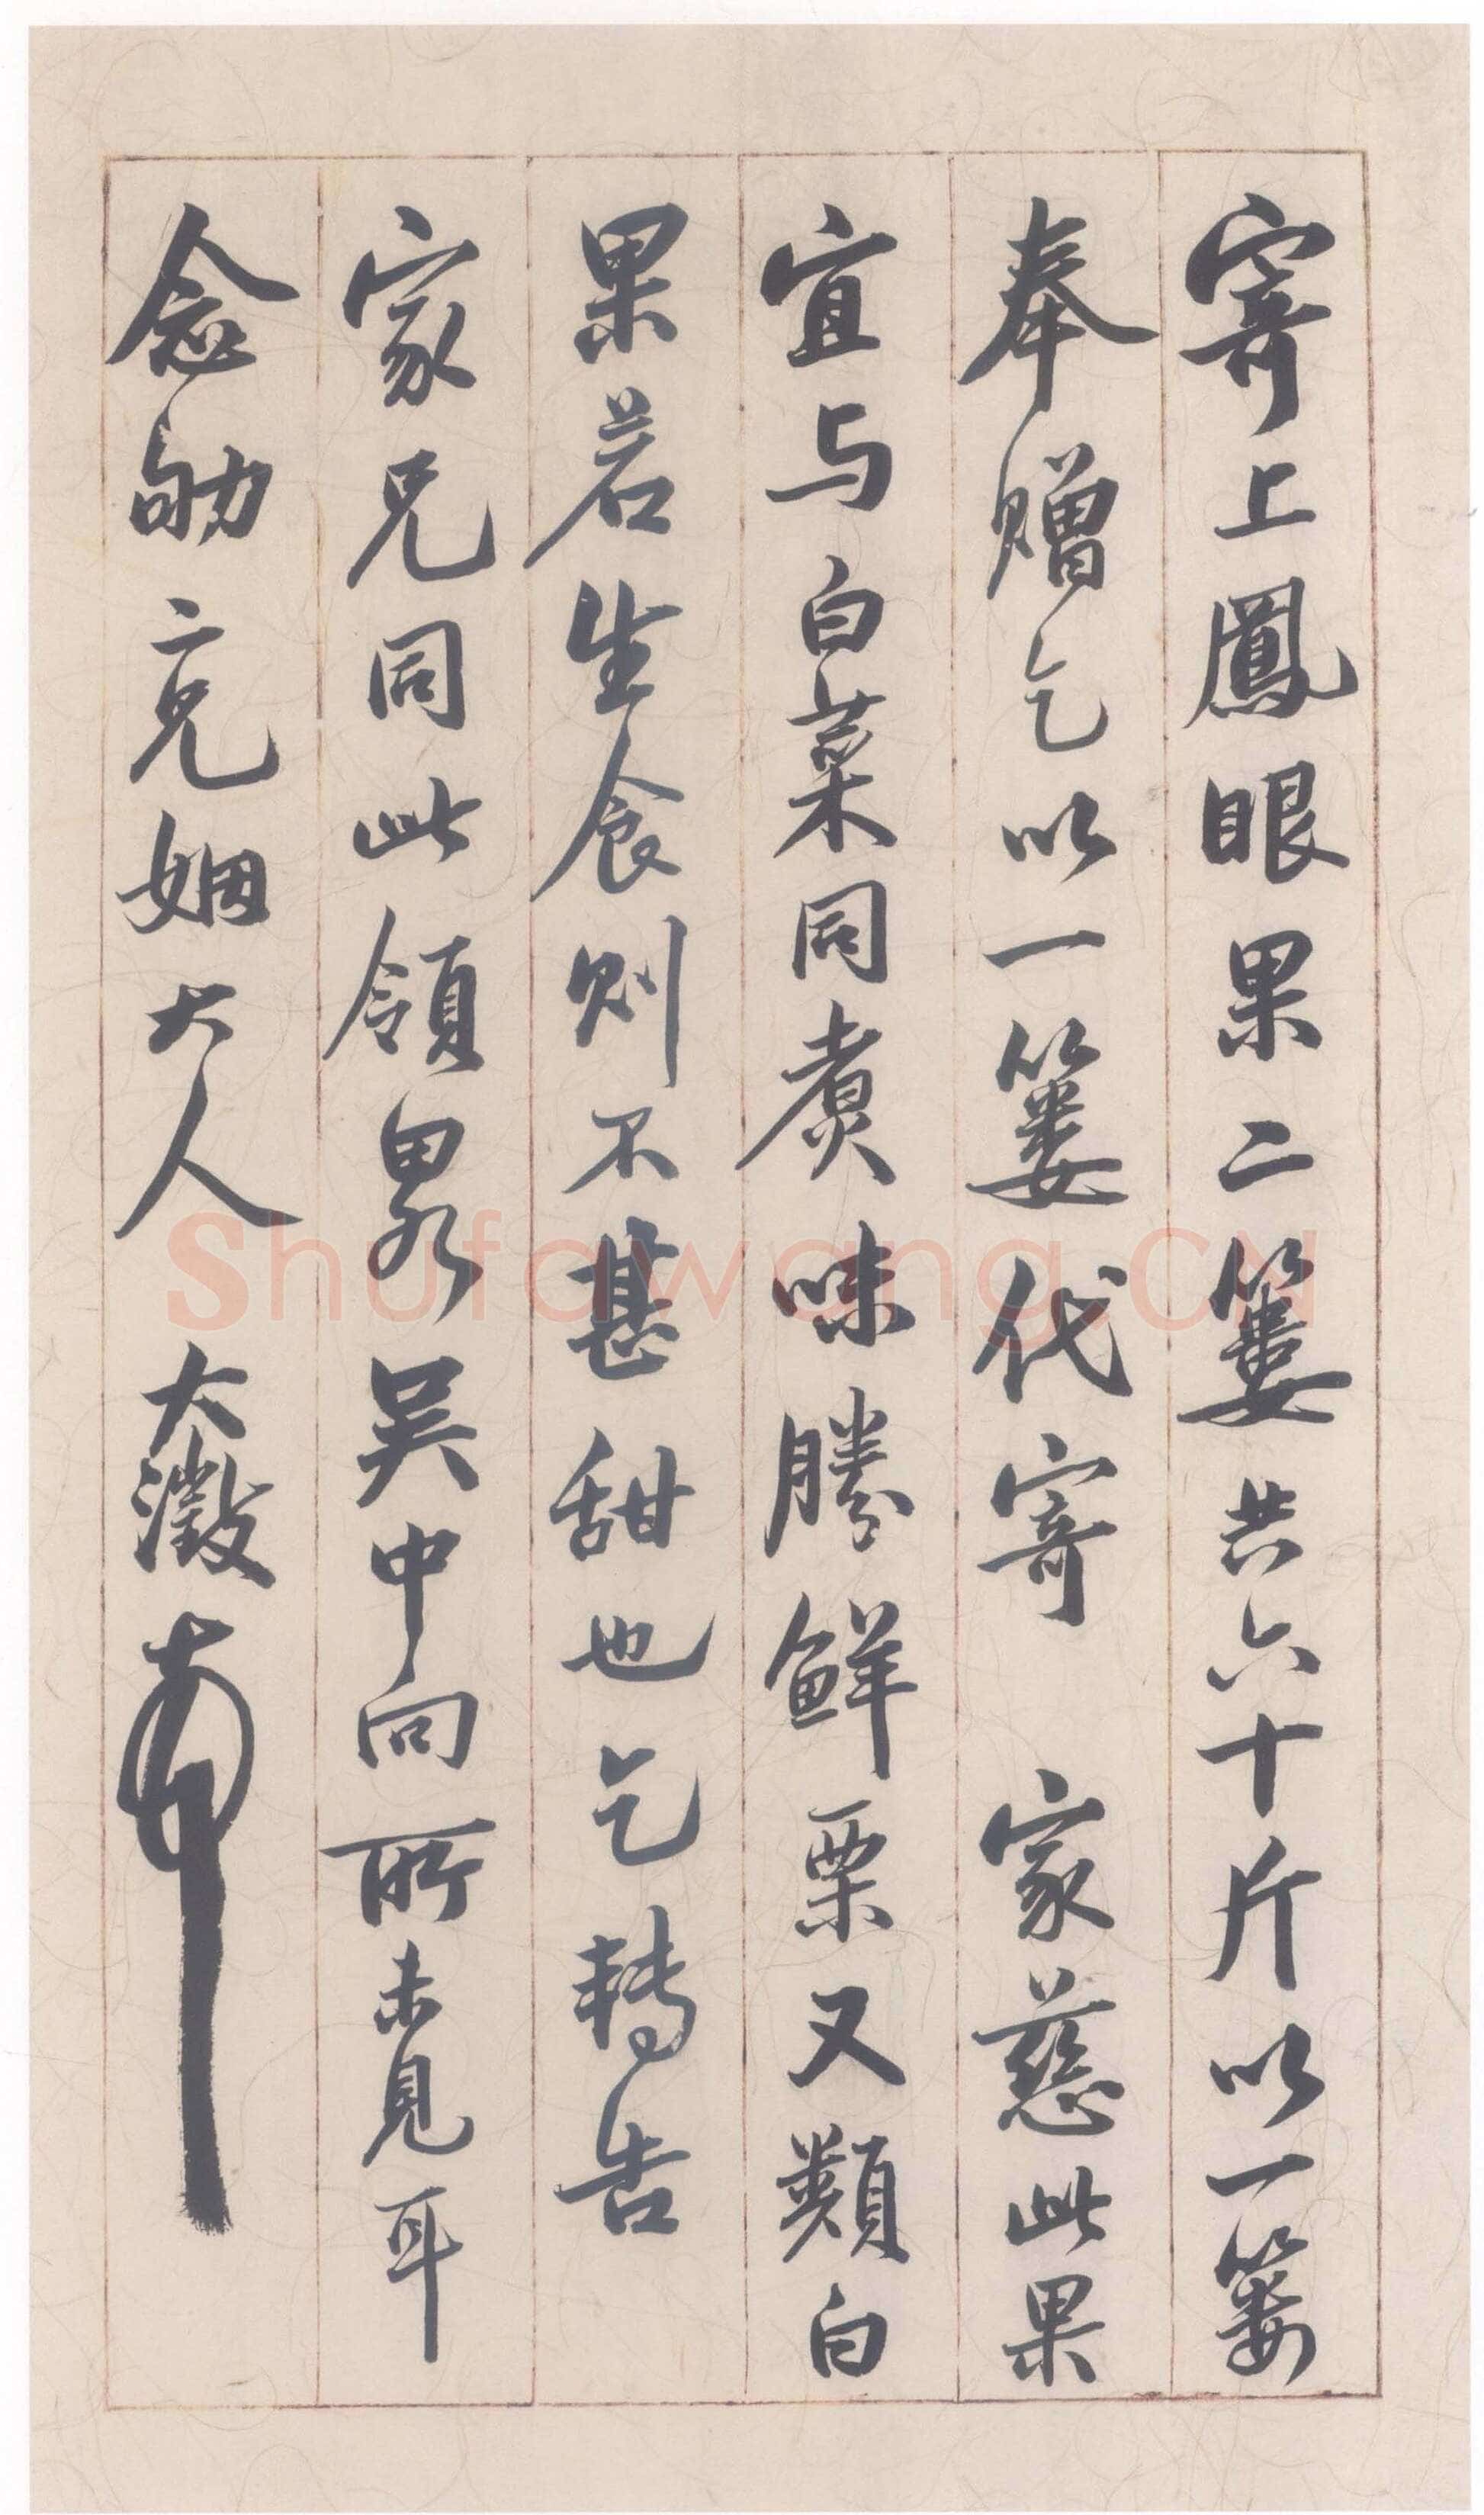 寄上鳳眼果二簍共六十斤以一簍
奉贈乞以一簍代寄 家慈此果
宜与白菜同煮味勝鮮栗又類白
果若生食則不甚甜也乞轉告
家兄同此領略吳中向所未見耳
念劬二兄姻大人 大澂頓
Shufawang.CN